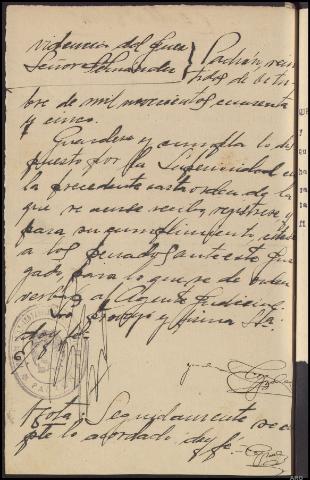 videncia del Juez
Señor Fernández
Padrón, vein
tidos de octu
bre de mil novecientos cuarenta
y cinco.
Guárdese y cumpla lo dis
puesto por la Superioridad en
la precedente carta orden de la
que se acuse recibo, regístrese y
para su cumplimiento, cítese
a los penados ante este Juz
gado, para lo que se dé orden
verbal al Agente Judicial.
Lo proveyó y firma Sª.
doy fe.
Nota: Seguidamente se cum
ple lo acordado, doy fé.